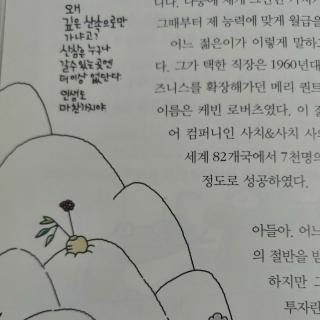 왜
깊은 산속으로만
가냐고?
산삼은 누구나
갈 수 있는 곳엔
더 이상 없단다.
인생도
마찬가지야
그때부터 제 능력에 맞게 월급을
어느 젊은이가 이렇게 말하고
다. 그가 택한 직장은 1960년대
즈니스를 확장해가던 메리 퀀트
이름은 케빈 로버츠였다. 이 젊
어 컴퍼니인 사치&사치 사의
세계 82개국에서 7천명의
정도로 성공하였다.
아들아. 어느
의 절반을 받
하지만 그
투자란